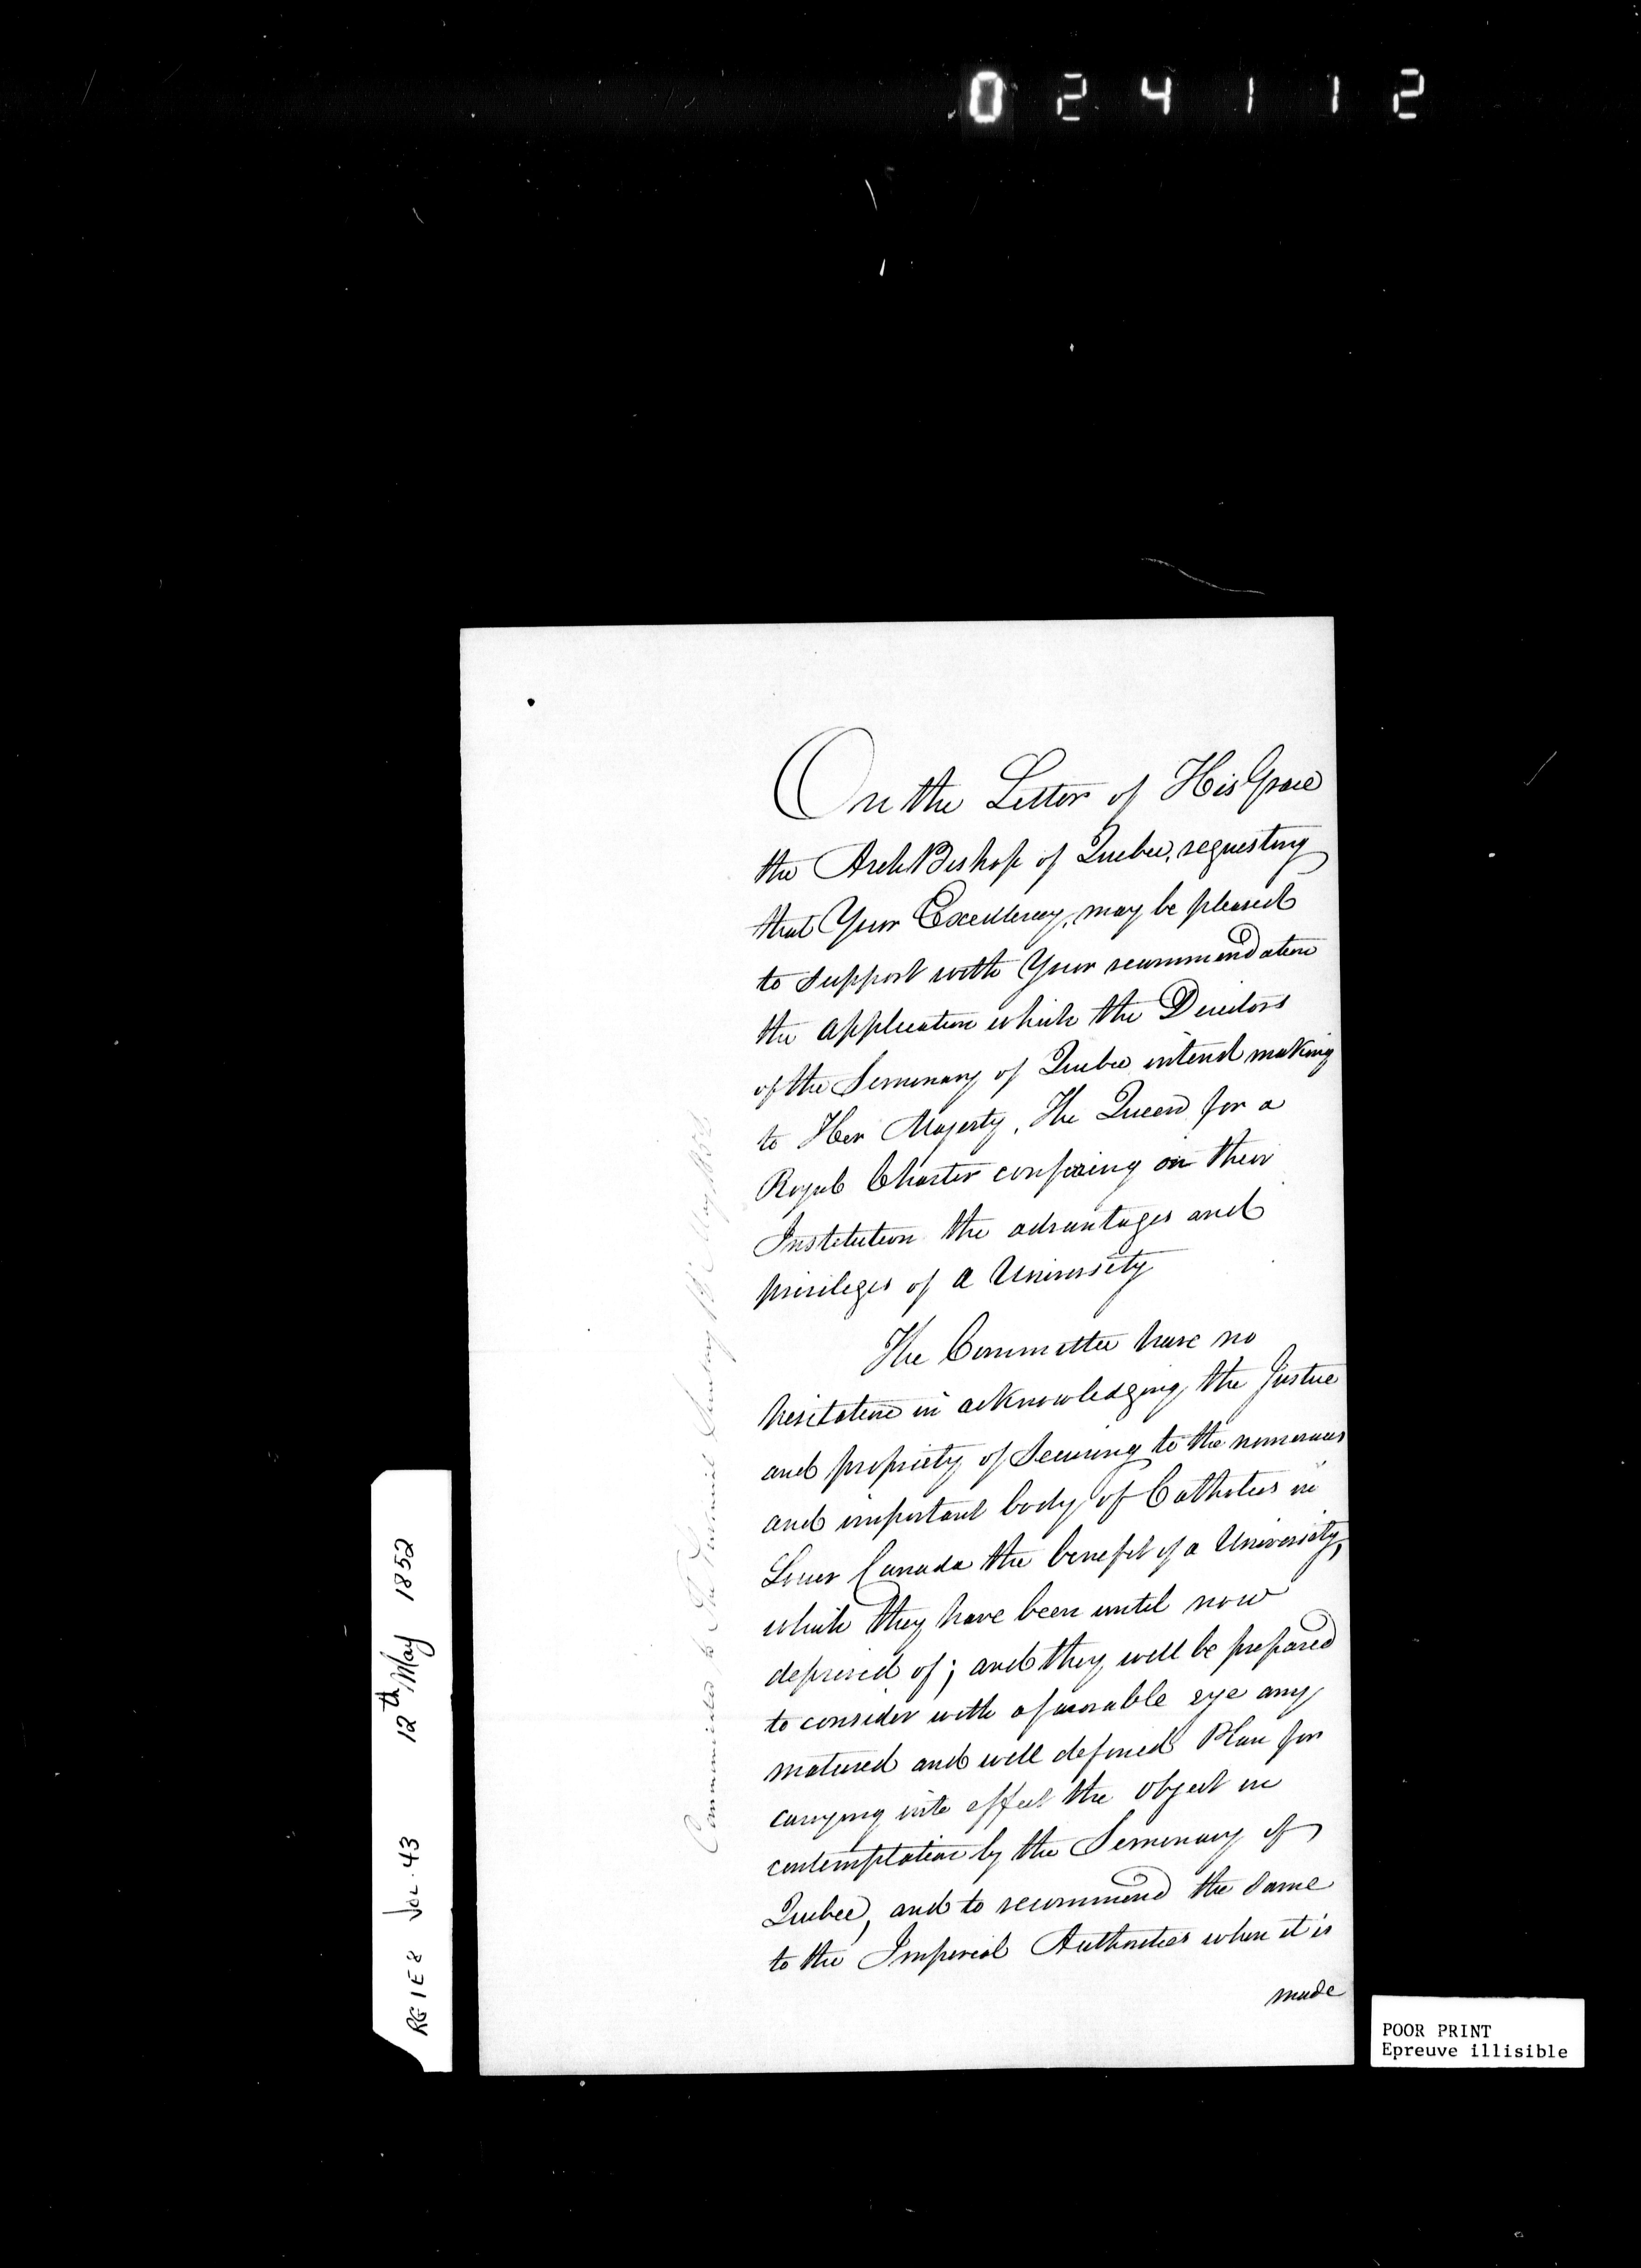 0 2 4 1 1 2
On the Letter of His Grace
the ArchBishop of Quebec, requesting
that Your Excellency, may be pleased
to support with Your recommendation
the application which the Directors
of the Seminary of Quebec intend making
to Her Majesty, The Queen for a
Royal Charter confering on their
Institution the advantages and
privileges of a University
The Committee have no
hesitation in acknowledging the Justice
and propriety of Securing to the numerous
and important body of Catholics in
Lower Canada the benefit of a University,
which they have been until now
deprived of; and they will be prepared
to consider with a favorable eye any
matured and well defined Plan for
carrying into effect the object in
contemplation by the Seminary of
Quebec, and to recommend the same
to the Imperial Authorities when it is
made
Communicated to The Provincial Secretary May 1852
RG 1 E 8 Vol. 43 12th May 1852
POOR PRINT
Epreuve illisible